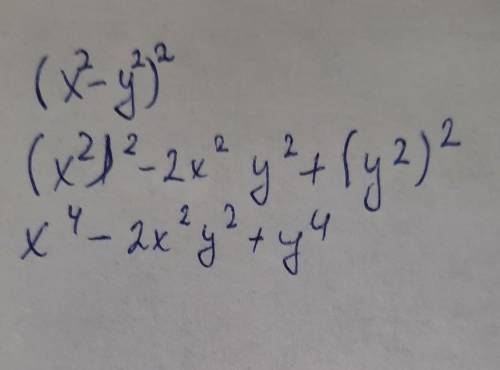 (x²-y²)²
(x²)²-2x² y²+(y²)²
x⁴-2x²y²+y⁴